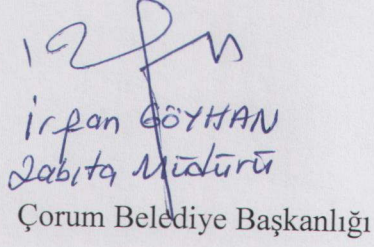 İrfan GÖYHAN
Zabıta Müdürü
Çorum Belediye Başkanlığı